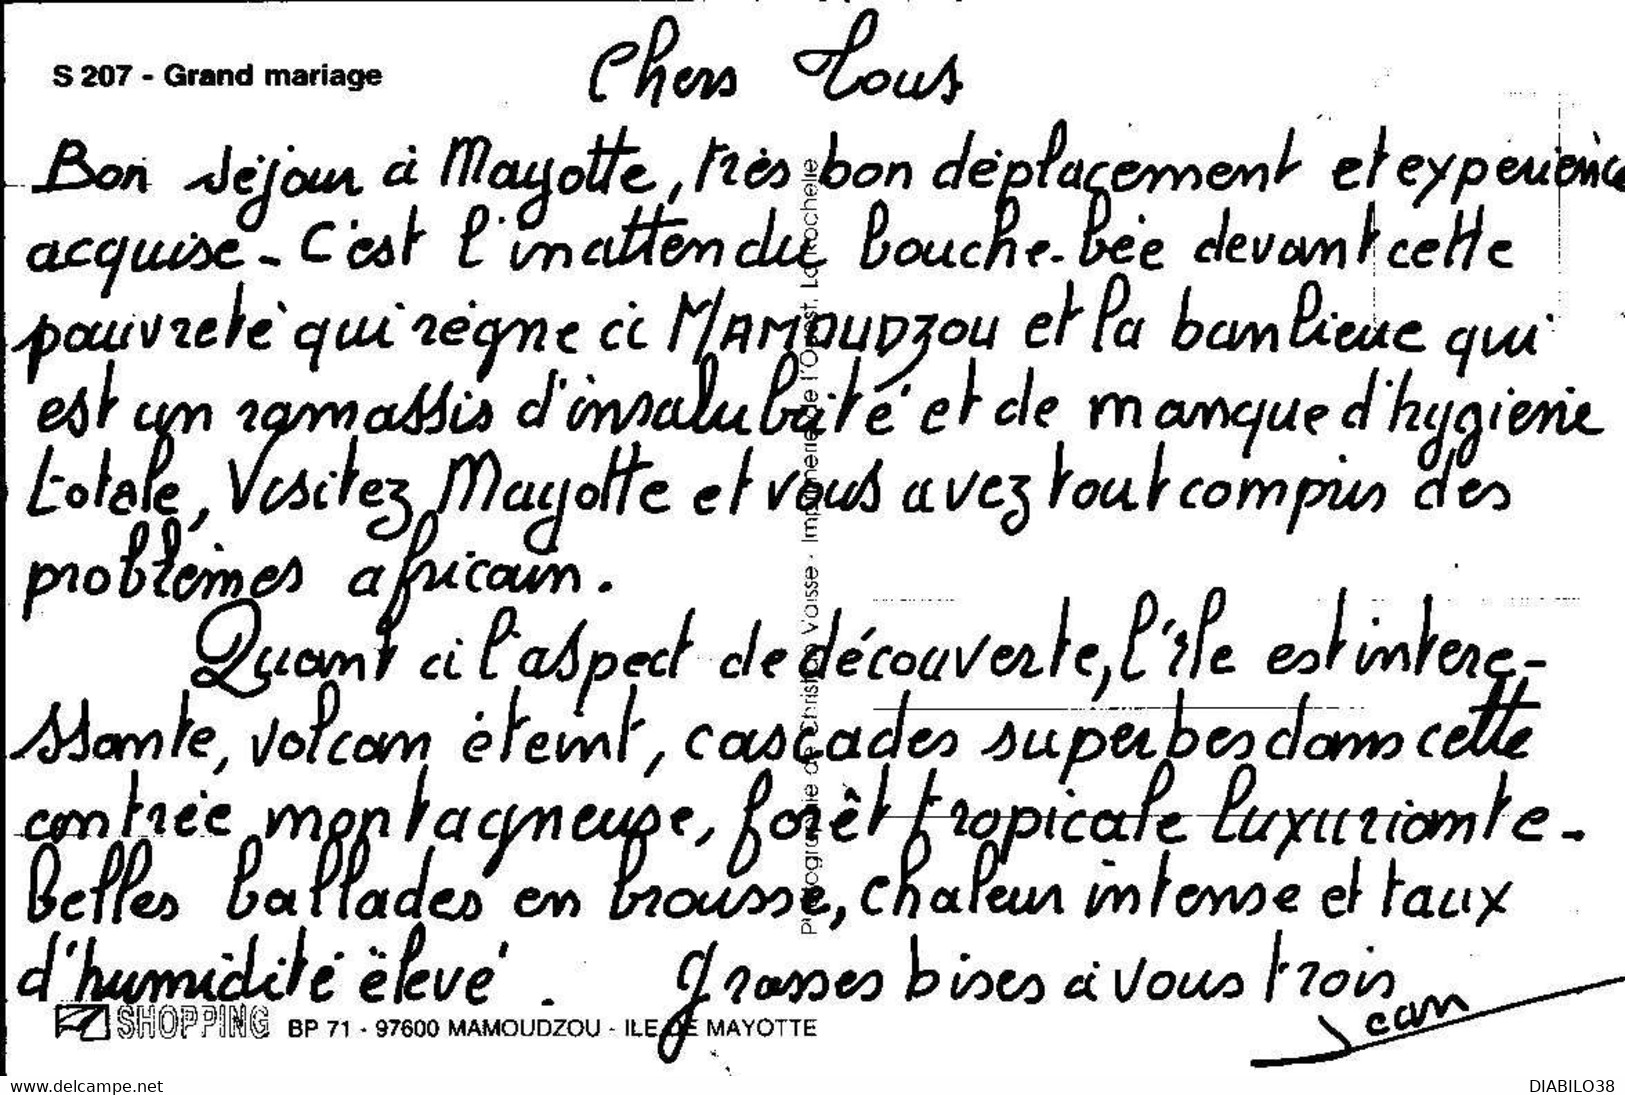 S 207 - Grand mariage
Chers Tous
Bon séjour à Mayotte, très bon déplacement et expérience
acquise - C'est l'inattendu bouche-bée devant cette
pauvreté qui règne à MAMOUDZOU et la banlieue qui
est un ramassis d'insalubrité et de manque d'hygiène
totale, Visitez Mayotte et vous avez tout compris des
problèmes africain.
Quant à l'aspect de découverte, l'île est intére-
ssante, volcan éteint, cascades superbes dans cette
contrée montagneuse, forêt tropicale luxuriante -
belles ballades en brousse, chaleur intense et taux
d'humidité élevé. grosses bises à vous trois
Jean
SHOPPING BP 71 - 97600 MAMOUDZOU - ILE DE MAYOTTE
Photographie de Christian Vaisse - Imprimerie de l'Ouest, La Rochelle
www.delcampe.net
DIABILO38